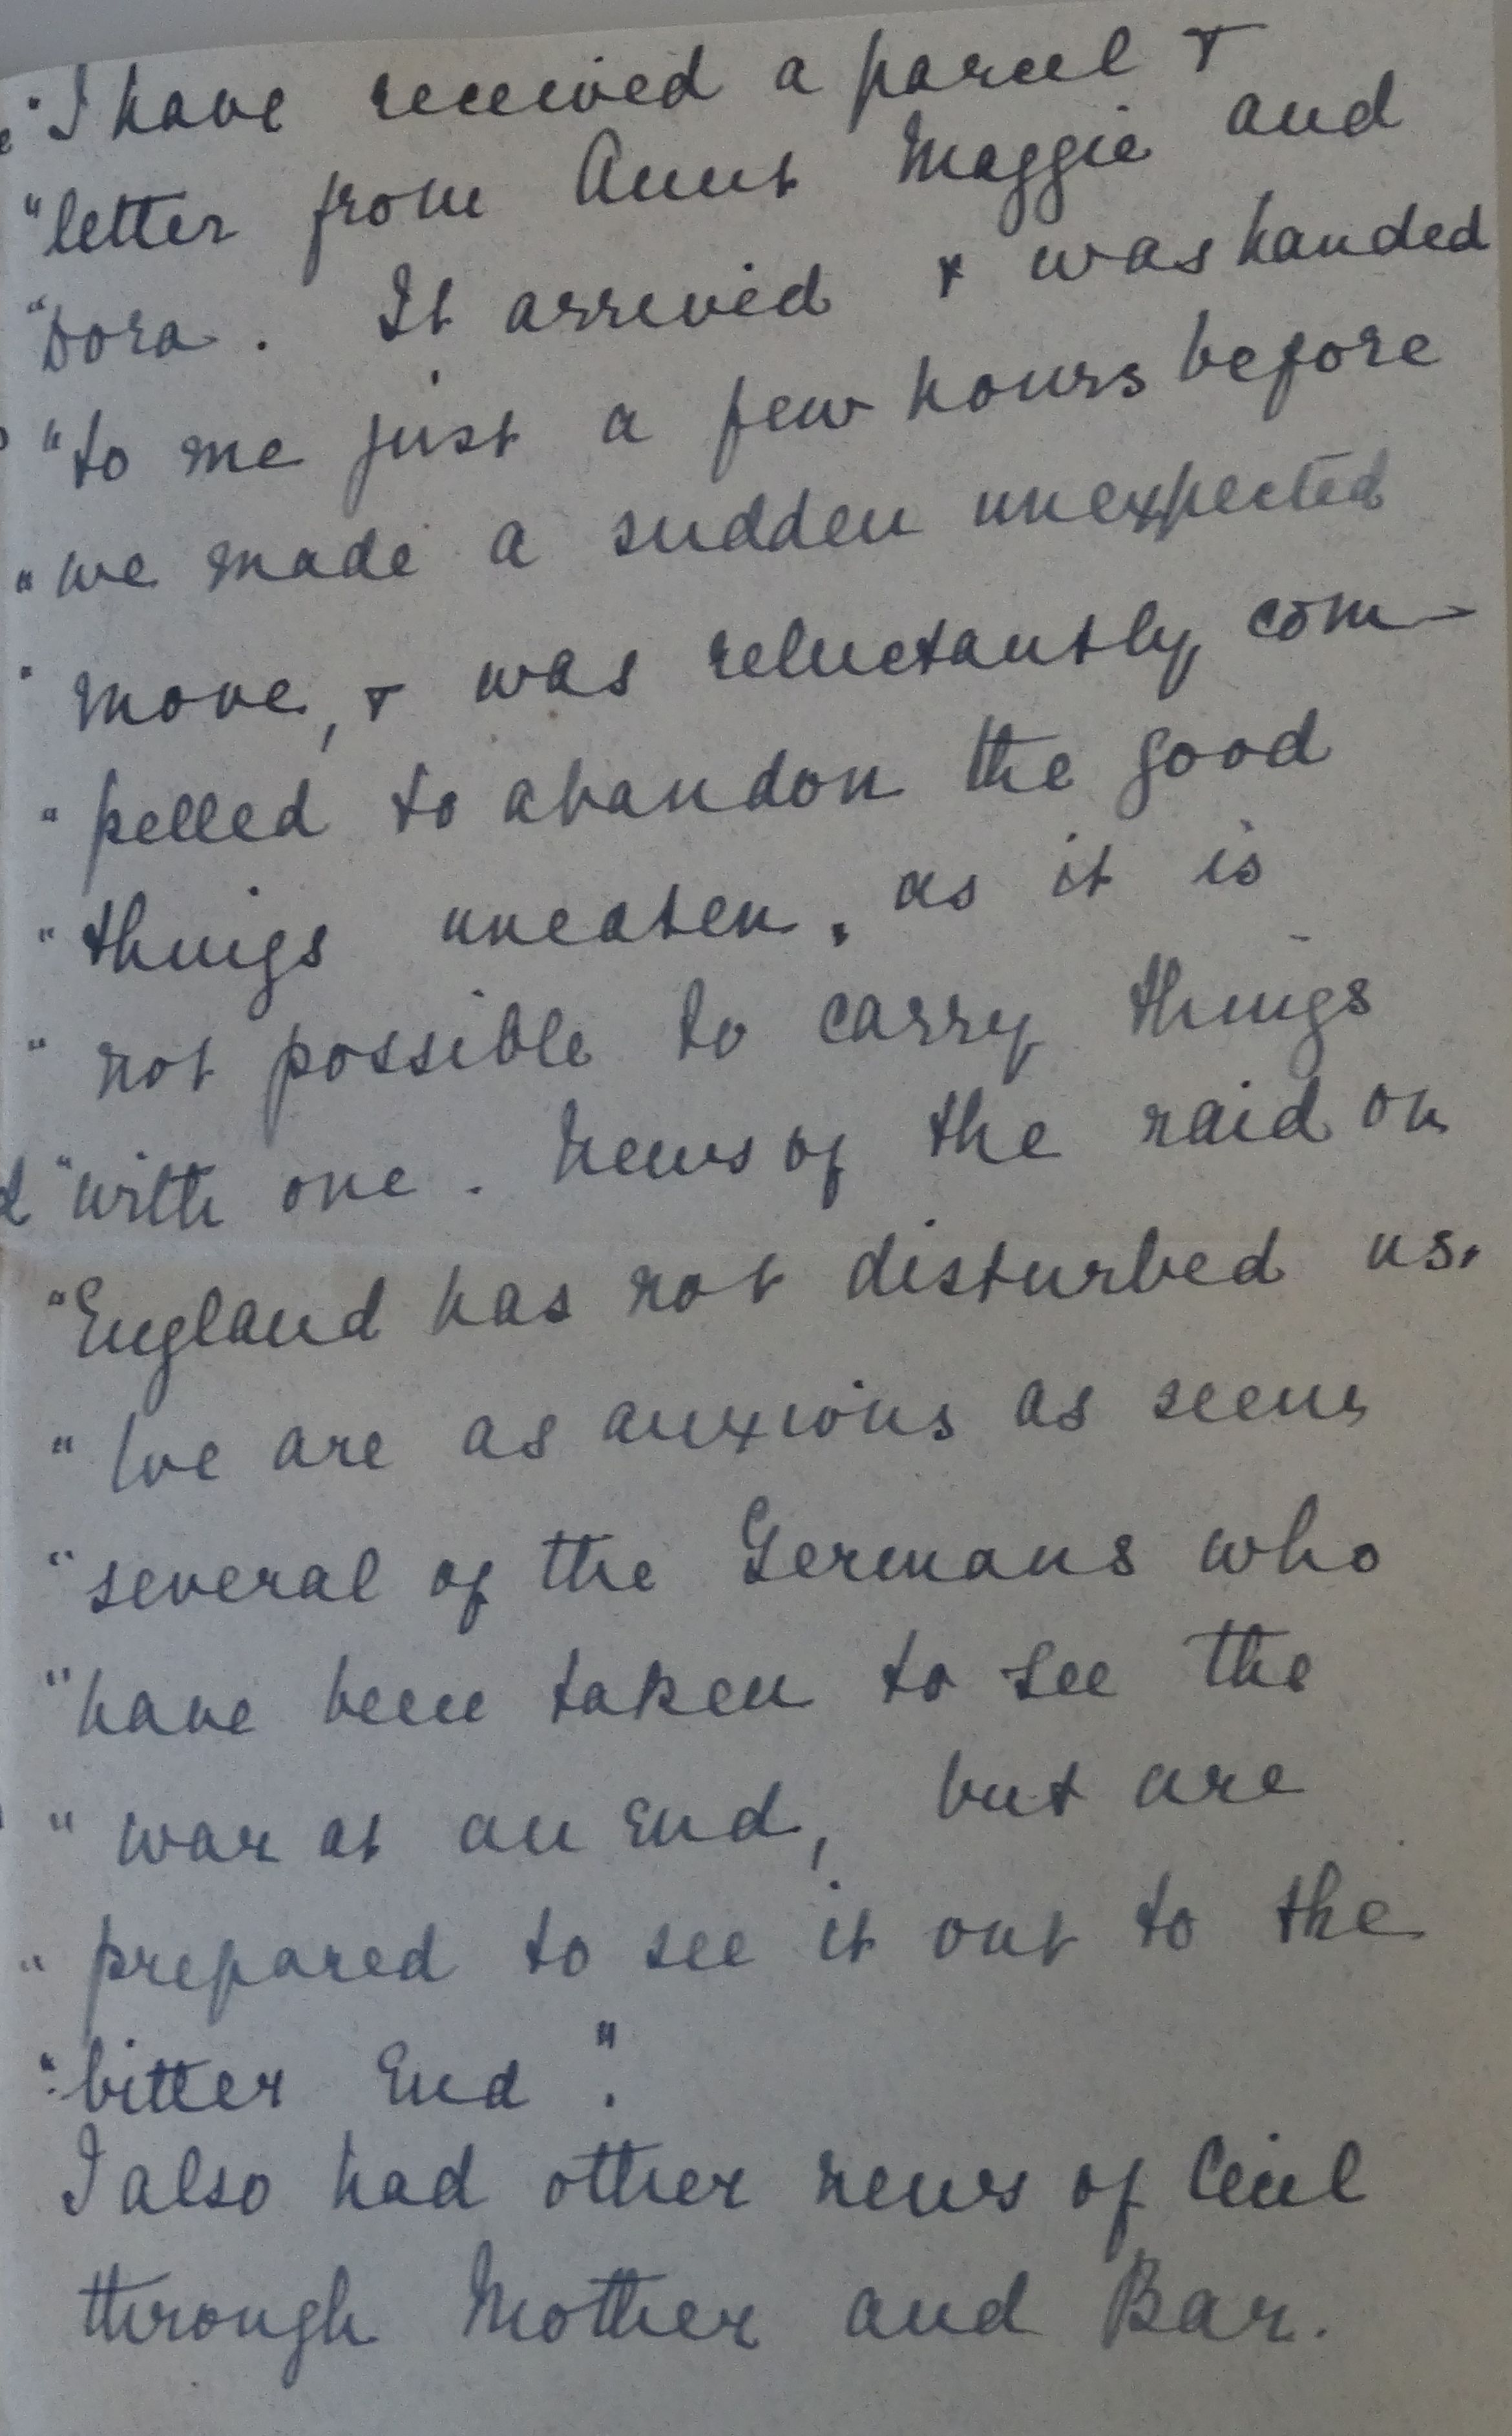 "I have received a parcel &
"letter from Aunt Maggie and
"Dora. It arrived & was handed
"to me just a few hours before
"we made a sudden unexpected
"move, & was reluctantly com-
"pelled to abandon the good
"things uneaten, as it is
"not possible to carry things
"with one. News of the raid on
"England has not disturbed us.
"We are as anxious as seems
"several of the Germans who
"have been taken to see the
"war at an end, but are
"prepared to see it out to the
"bitter End".
I also had other news of Cecil
through Mother and Bar.